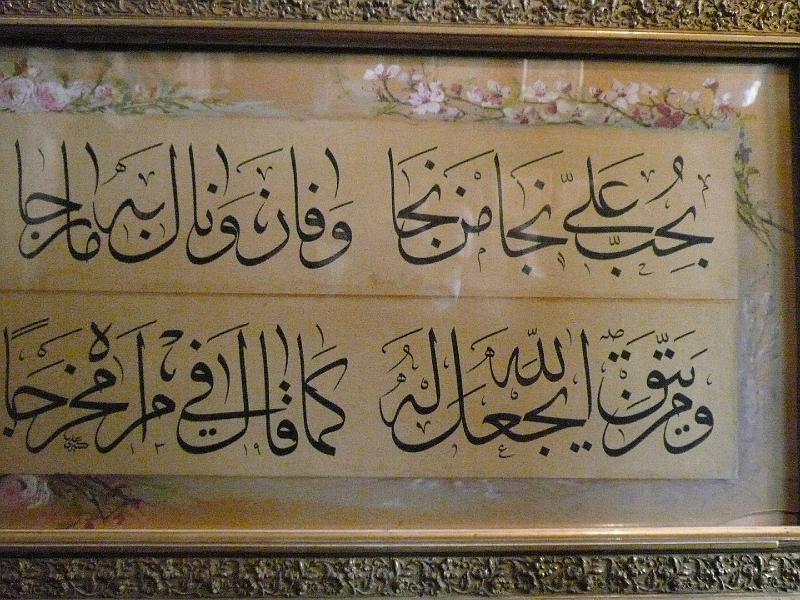 بِحُبِّ عَلِيّ نجا مَن نجا وفاز ونال به ما رجا
ومن يتّق الله يجعل له كما قال في امره مخرجًا